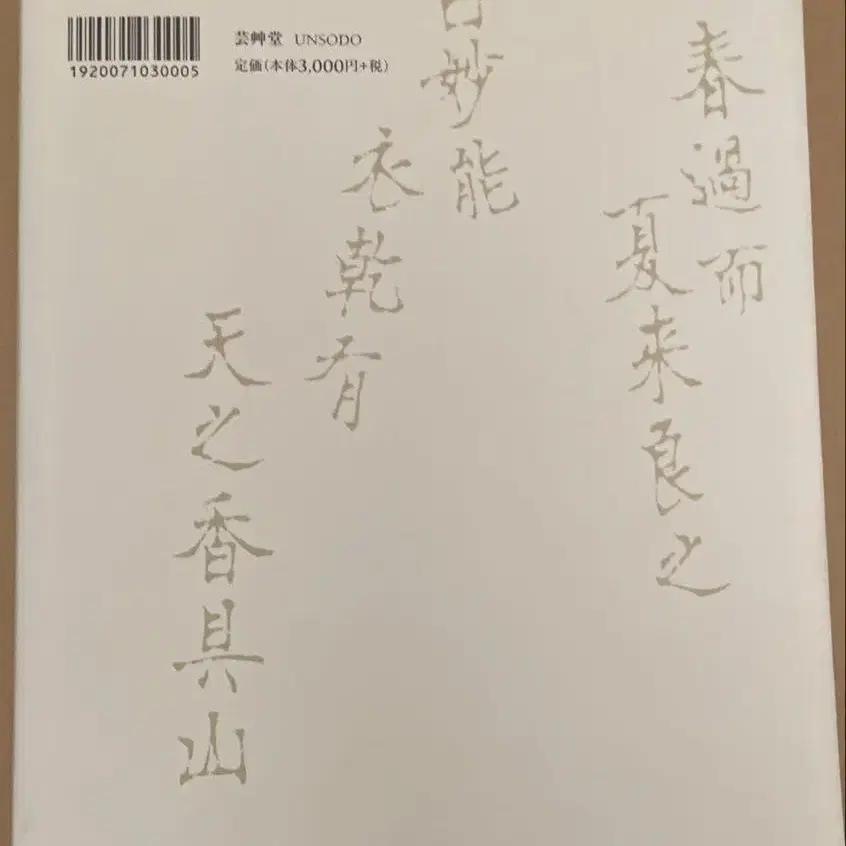 1920071030005
芸艸堂 UNSODO
定価(本体3,000円+税)
春過而
夏来良之
妙能
衣乾有
天之香具山